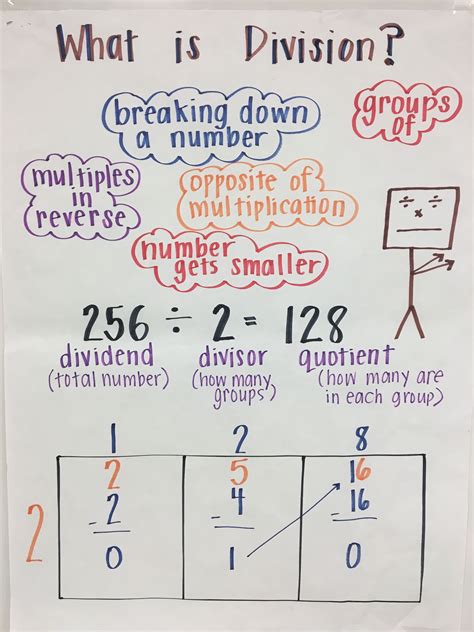 What is Division?
breaking down
a number
groups
of
multiples
in
reverse
opposite of
multiplication
number
gets smaller
÷ ÷
x
÷
256 ÷ 2 = 128
dividend
(total number)
divisor
(how many
groups)
quotient
(how many are
in each group)
1 2 8
2 5 16
2
-2 -4 -16
0 1 0